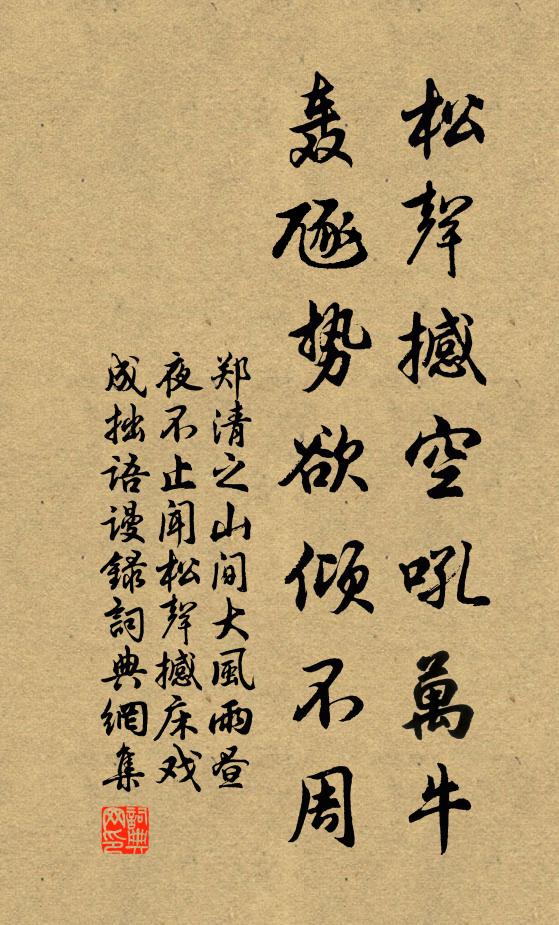 松聲撼空吼萬牛
轰豗势欲倾不周
郑清之山间大風雨昼
夜不止闻松聲撼床戏
成拙语谩録詞典網集
詞典
网印